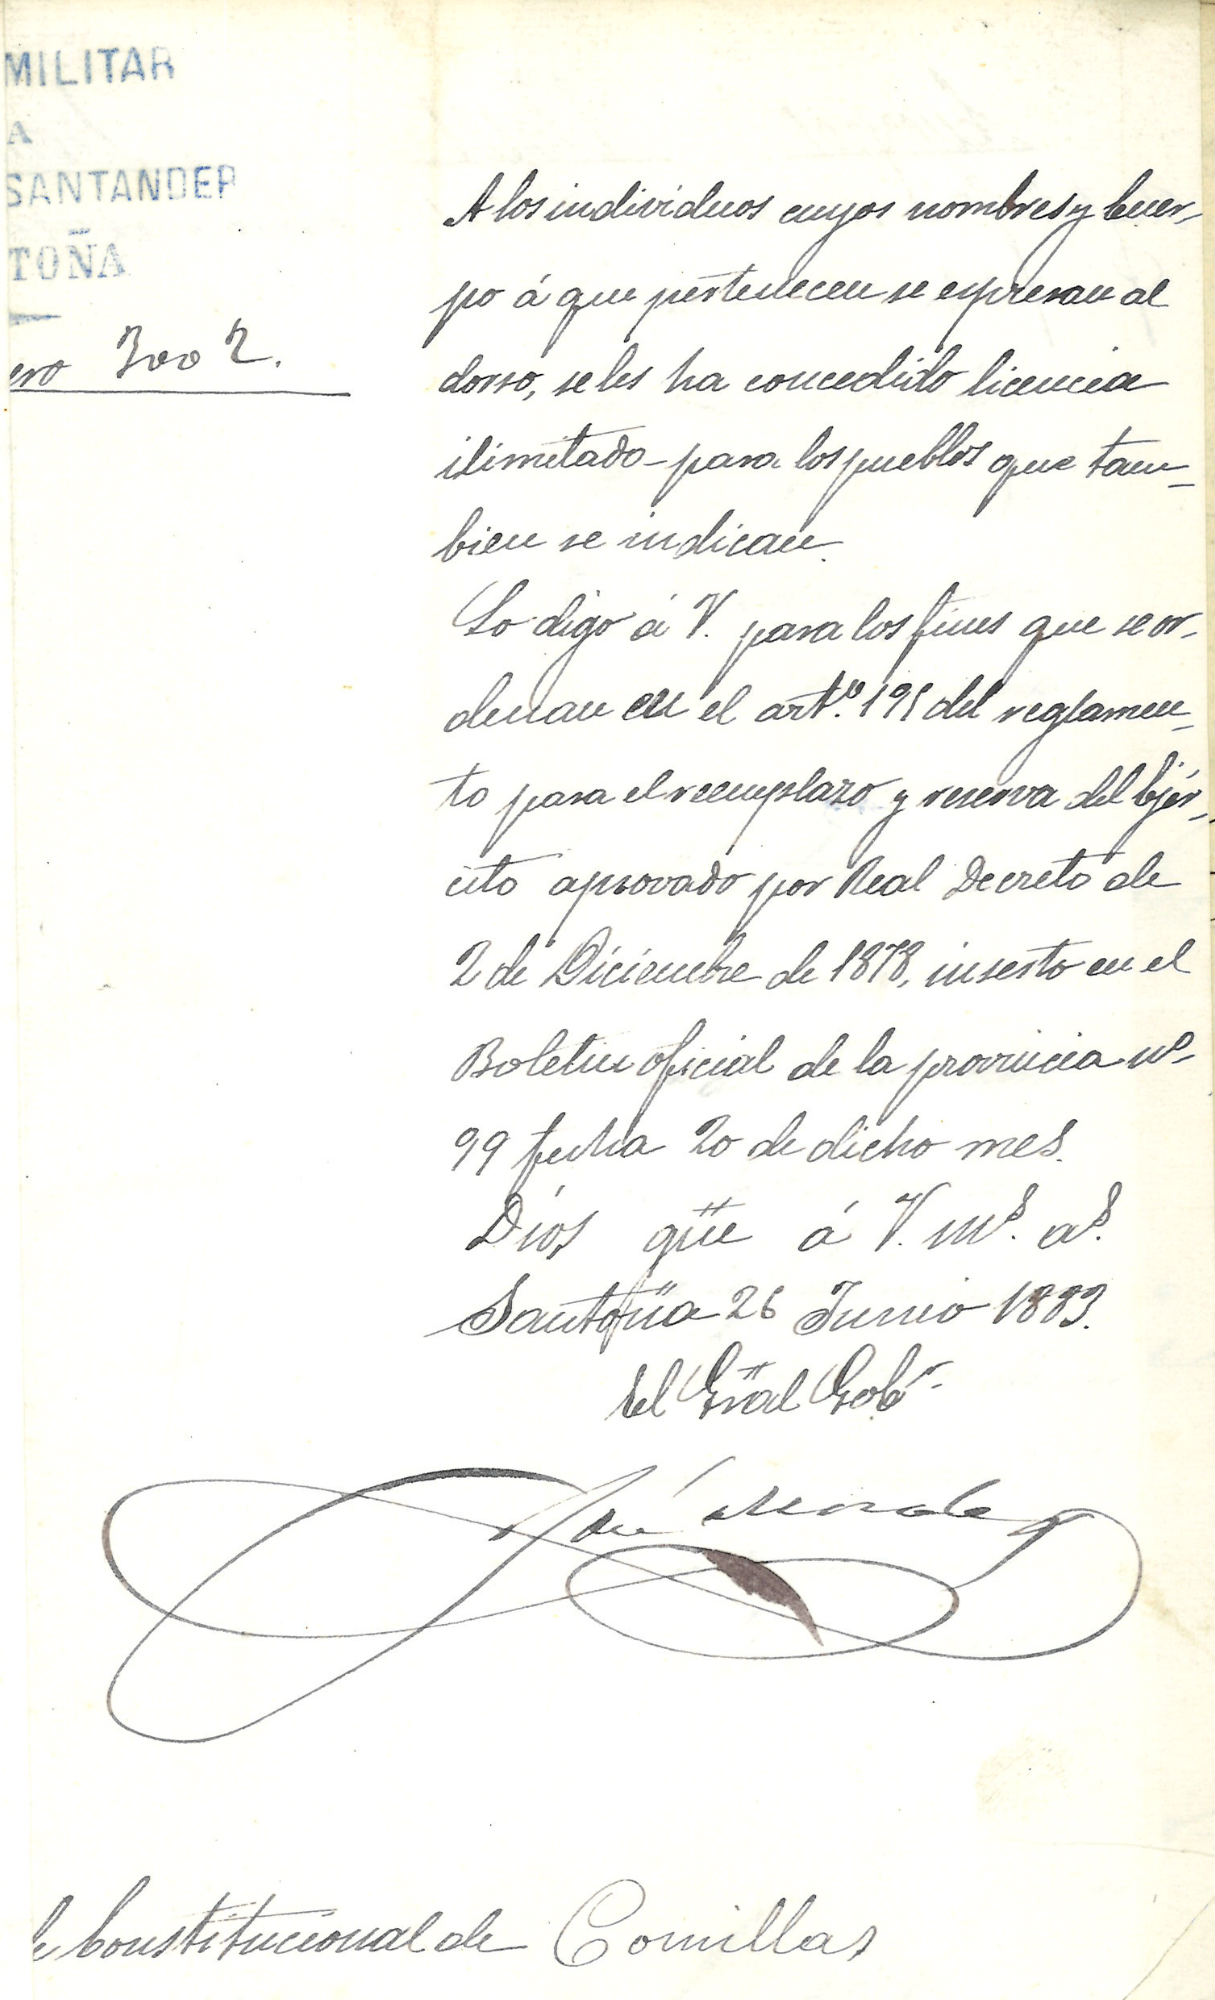 MILITAR
A
SANTANDER
TOÑA
ero 3002.
A los individuos cuyos nombres y Cuer-
po á que pertenecen se espresan al
dorso, se les ha concedido licencia
ilimitado para los pueblos que tam-
bien se indican.
Lo digo á V. para los fines que se or-
denan en el artº. 195 del reglamen-
to para el reemplazo y reserva del Ejér-
cito aprovado por Real Decreto de
2 de Diciembre de 1878, inserto en el
Boletin oficial de la provincia nº.
99 fecha 20 de dicho mes.
Dios güe á V. ms. as.
Santoña 26 Junio 1883.
El Gral Gobr.
José
e Constitucional de Comillas